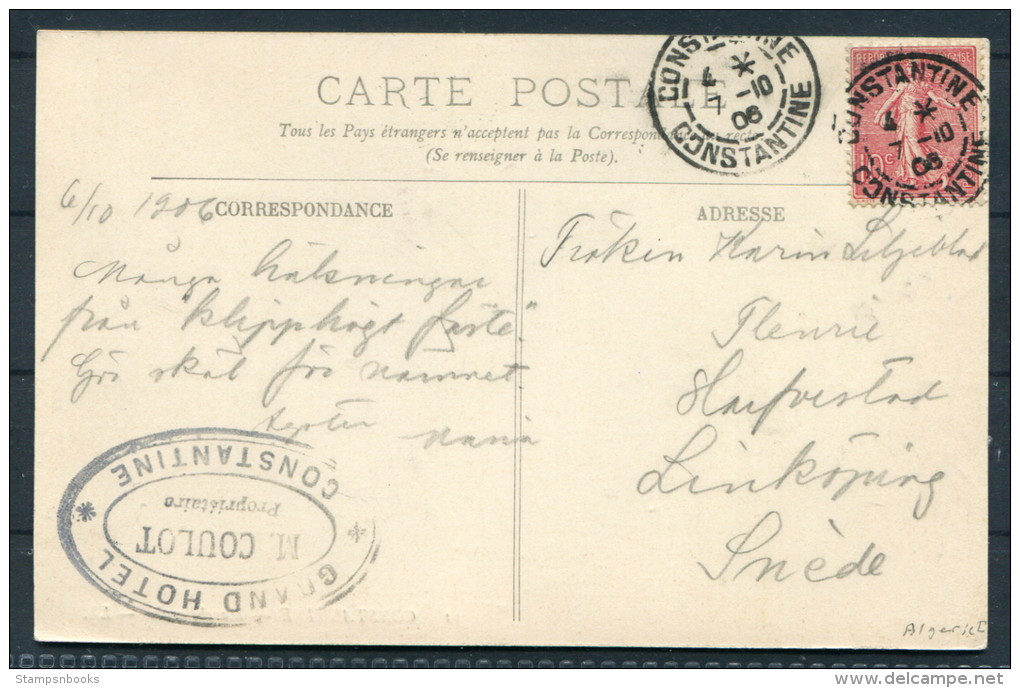 CARTE POSTALE
Tous les Pays étrangers n'acceptent pas la Correspondance au recto
(Se renseigner à la Poste).
CONSTANTINE
7 -10
06
CONSTANTINE
10c
CONSTANTINE
7 -10
06
CONSTANTINE
6/10 1906
CORRESPONDANCE
Många hälsningar
från "klipphögt fäste".
skål för
Maria
GRAND HOTEL
CONSTANTINE
M. COULOT
Propriétaire
ADRESSE
Fröken Karin Liljeblad
Linköping
Suède
Stampsnbooks
delcampe.net